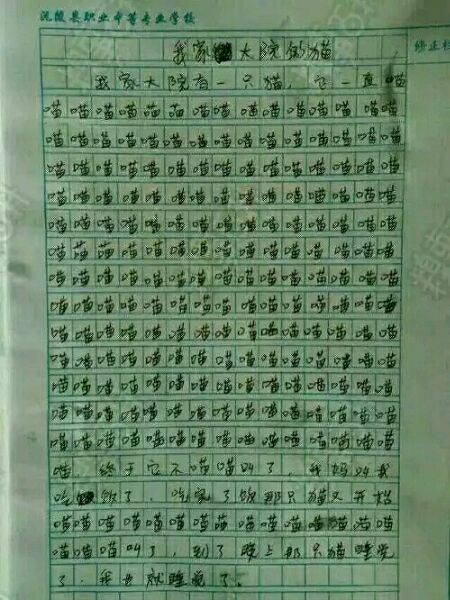 沅陵县职业中等专业学校
修正栏
我家大院的猫
我家大院有一只猫，它一直喵
喵喵喵喵喵喵喵喵喵喵喵喵喵喵喵
喵喵喵喵喵喵喵喵喵喵喵喵喵喵喵
喵喵喵喵喵喵喵喵喵喵喵喵喵喵喵
喵喵喵喵喵喵喵喵喵喵喵喵喵喵喵
喵喵喵喵喵喵喵喵喵喵喵喵喵喵喵
喵喵喵喵喵喵喵喵喵喵喵喵喵喵喵
喵喵喵喵喵喵喵喵喵喵喵喵喵喵喵
喵喵喵喵喵喵喵喵喵喵喵喵喵喵喵
喵喵喵喵喵喵喵喵喵喵喵喵喵喵喵
喵喵喵喵喵喵喵喵喵喵喵喵喵喵喵
喵喵喵喵喵喵喵喵喵喵喵喵喵喵喵
喵喵喵喵喵喵喵喵喵喵喵喵喵喵喵
喵喵喵喵喵喵喵喵喵喵喵喵喵喵喵
喵终于它不喵喵叫了，我妈叫我
吃饭了，吃完了饭那只猫又开始
喵喵喵喵喵喵喵喵喵喵喵喵喵喵喵
喵喵喵叫了，到了晚上那只猫睡觉
了，我也就睡觉了。